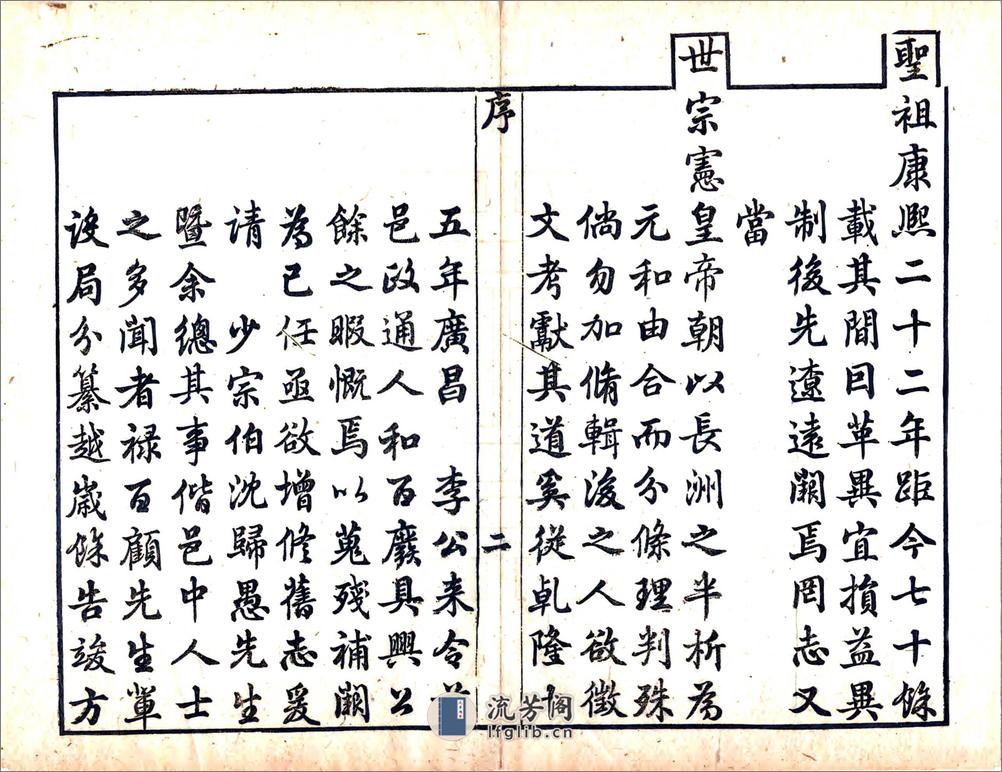 聖祖康熙二十二年距今七十餘
載其間因革異宜損益異
制後先遼遠闕焉罔志又
當
世宗憲皇帝朝以長洲之半析為
元和由合而分條理判殊
倘勿加脩輯後之人欲徵
文考獻其道奚從乹隆十
序
二
五年廣昌 李公来令
邑政通人和百廢具興公
餘之暇慨焉以蒐殘補闕
為己任亟欲增修舊志爰
請 少宗伯沈歸愚先生
暨余總其事偕邑中人士
之多聞者禄百顧先生軰
設局分纂越嵗餘告竣方
流芳阁
lfglib.cn